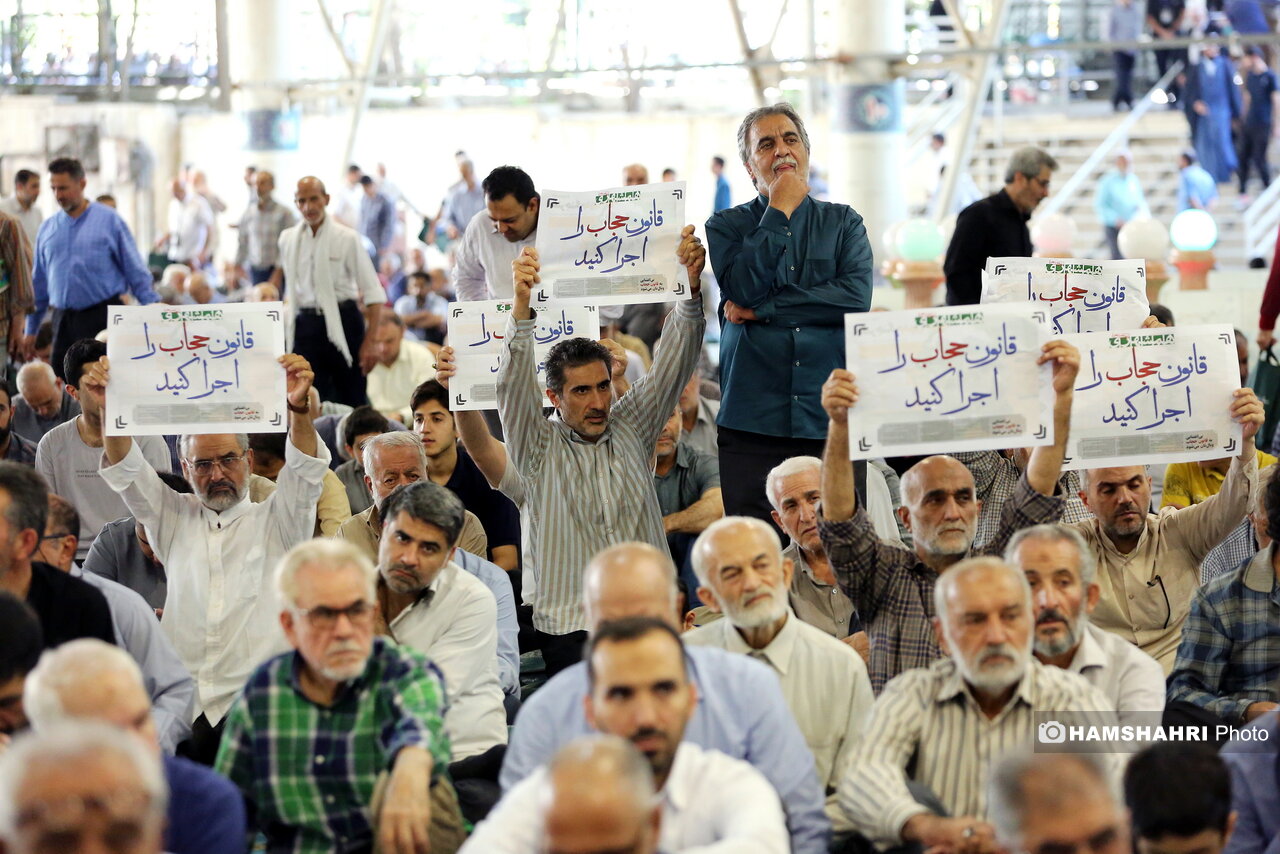 قانون حجاب را
اجرا کنید
قانون حجاب را
اجرا کنید
قانون حجاب را
قانون حجاب را
اجرا کنید
قانون حجاب را
اجرا کنید
قانون حجاب را
اجرا کنید
HAMSHAHRI Photo